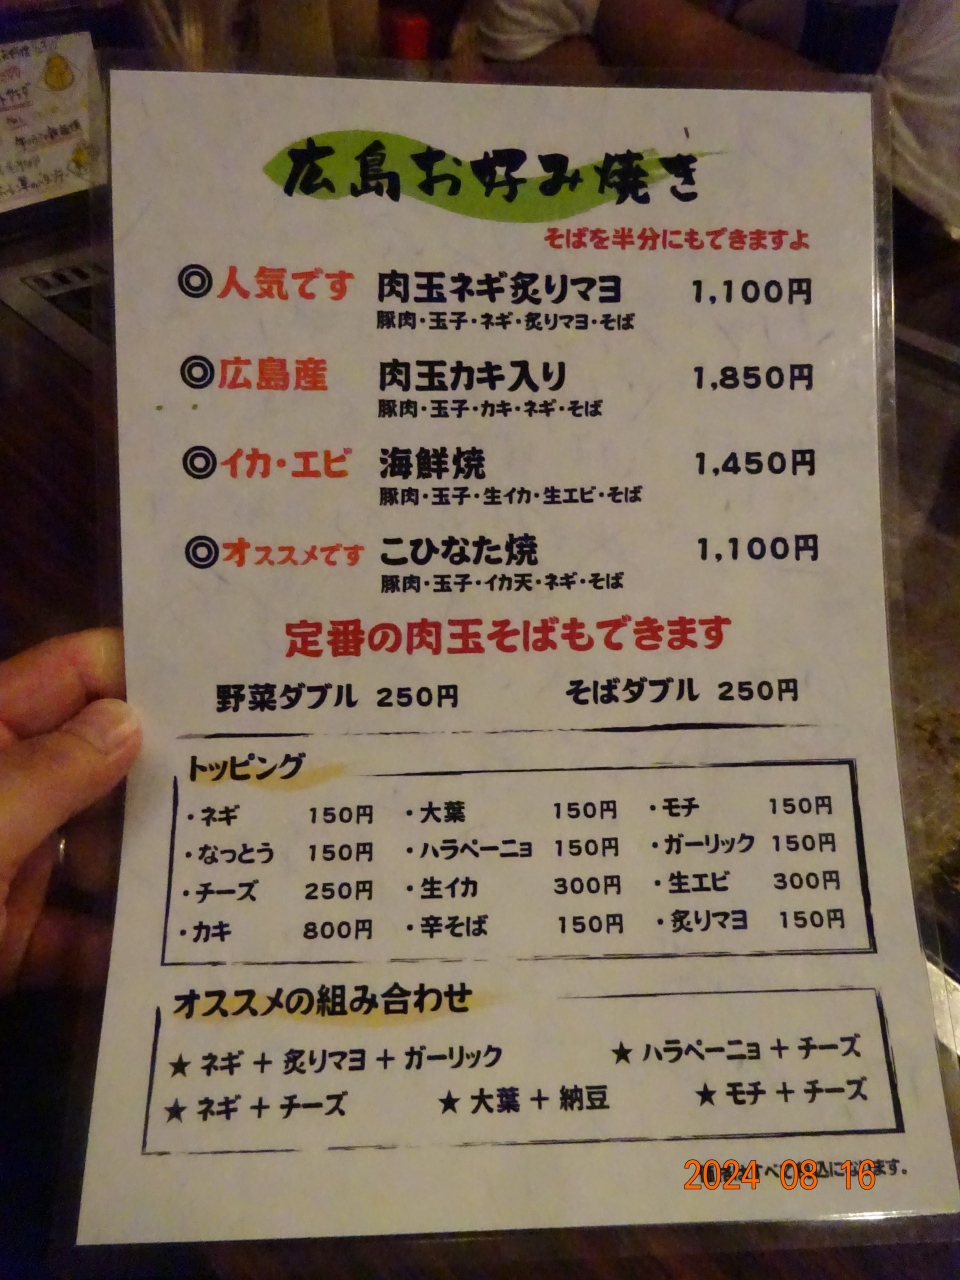 広島お好み焼き
そばを半分にもできますよ
◎人気です 肉玉ネギ炙りマヨ 1,100円
豚肉・玉子・ネギ・炙りマヨ・そば
◎広島産 肉玉カキ入り 1,850円
豚肉・玉子・カキ・ネギ・そば
◎イカ・エビ 海鮮焼 1,450円
豚肉・玉子・生イカ・生エビ・そば
◎オススメです こひなた焼 1,100円
豚肉・玉子・イカ天・ネギ・そば
定番の肉玉そばもできます
野菜ダブル 250円 そばダブル 250円
トッピング
・ネギ 150円 ・大葉 150円 ・モチ 150円
・なっとう 150円 ・ハラペーニョ 150円 ・ガーリック 150円
・チーズ 250円 ・生イカ 300円 ・生エビ 300円
・カキ 800円 ・辛そば 150円 ・炙りマヨ 150円
オススメの組み合わせ
★ ネギ + 炙りマヨ + ガーリック ★ ハラペーニョ + チーズ
★ ネギ + チーズ ★ 大葉 + 納豆 ★ モチ + チーズ
すべて込になります。
2024 08 16